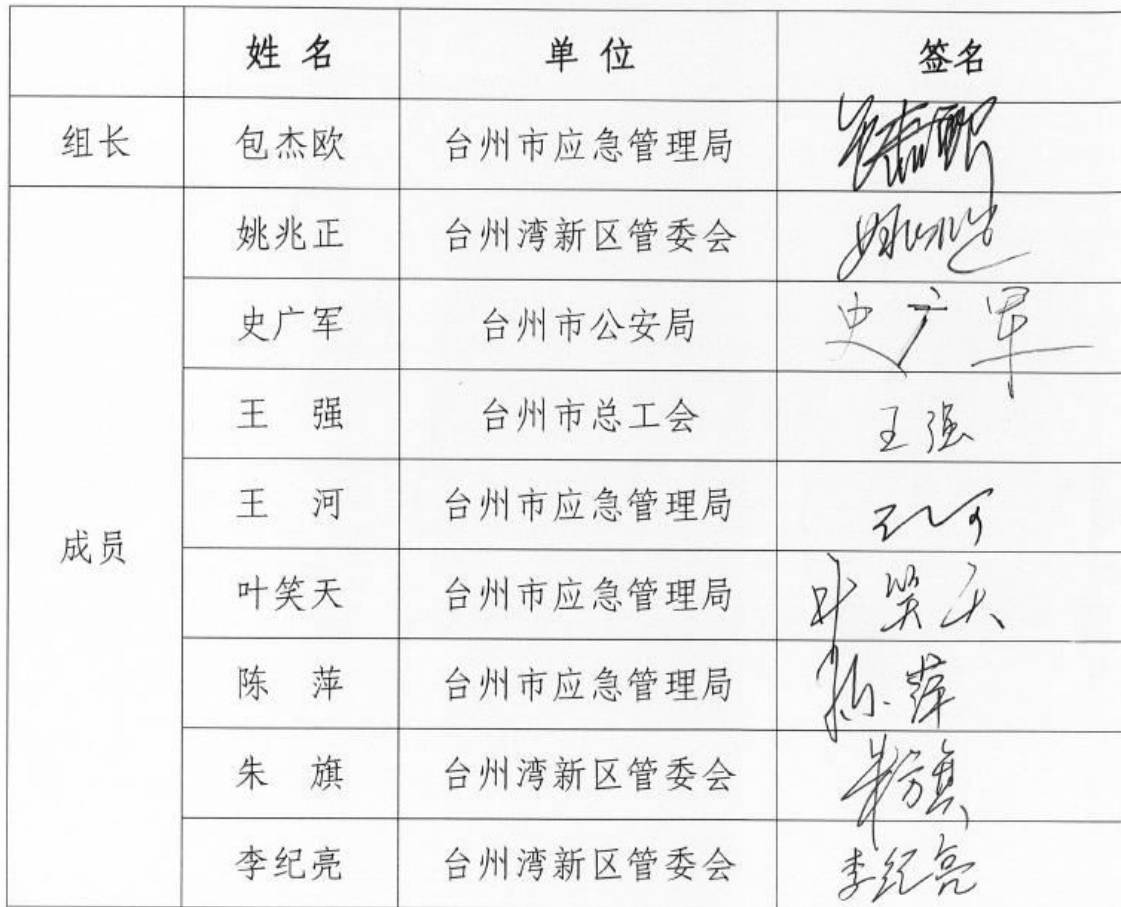 姓 名 单 位 签名
组长 包杰欧 台州市应急管理局
姚兆正 台州湾新区管委会
史广军 台州市公安局 史广军
王 强 台州市总工会 王强
王 河 台州市应急管理局 王河
成员
叶笑天 台州市应急管理局 叶笑天
陈 萍 台州市应急管理局 陈萍
朱 旗 台州湾新区管委会 朱旗
李纪亮 台州湾新区管委会 李纪亮